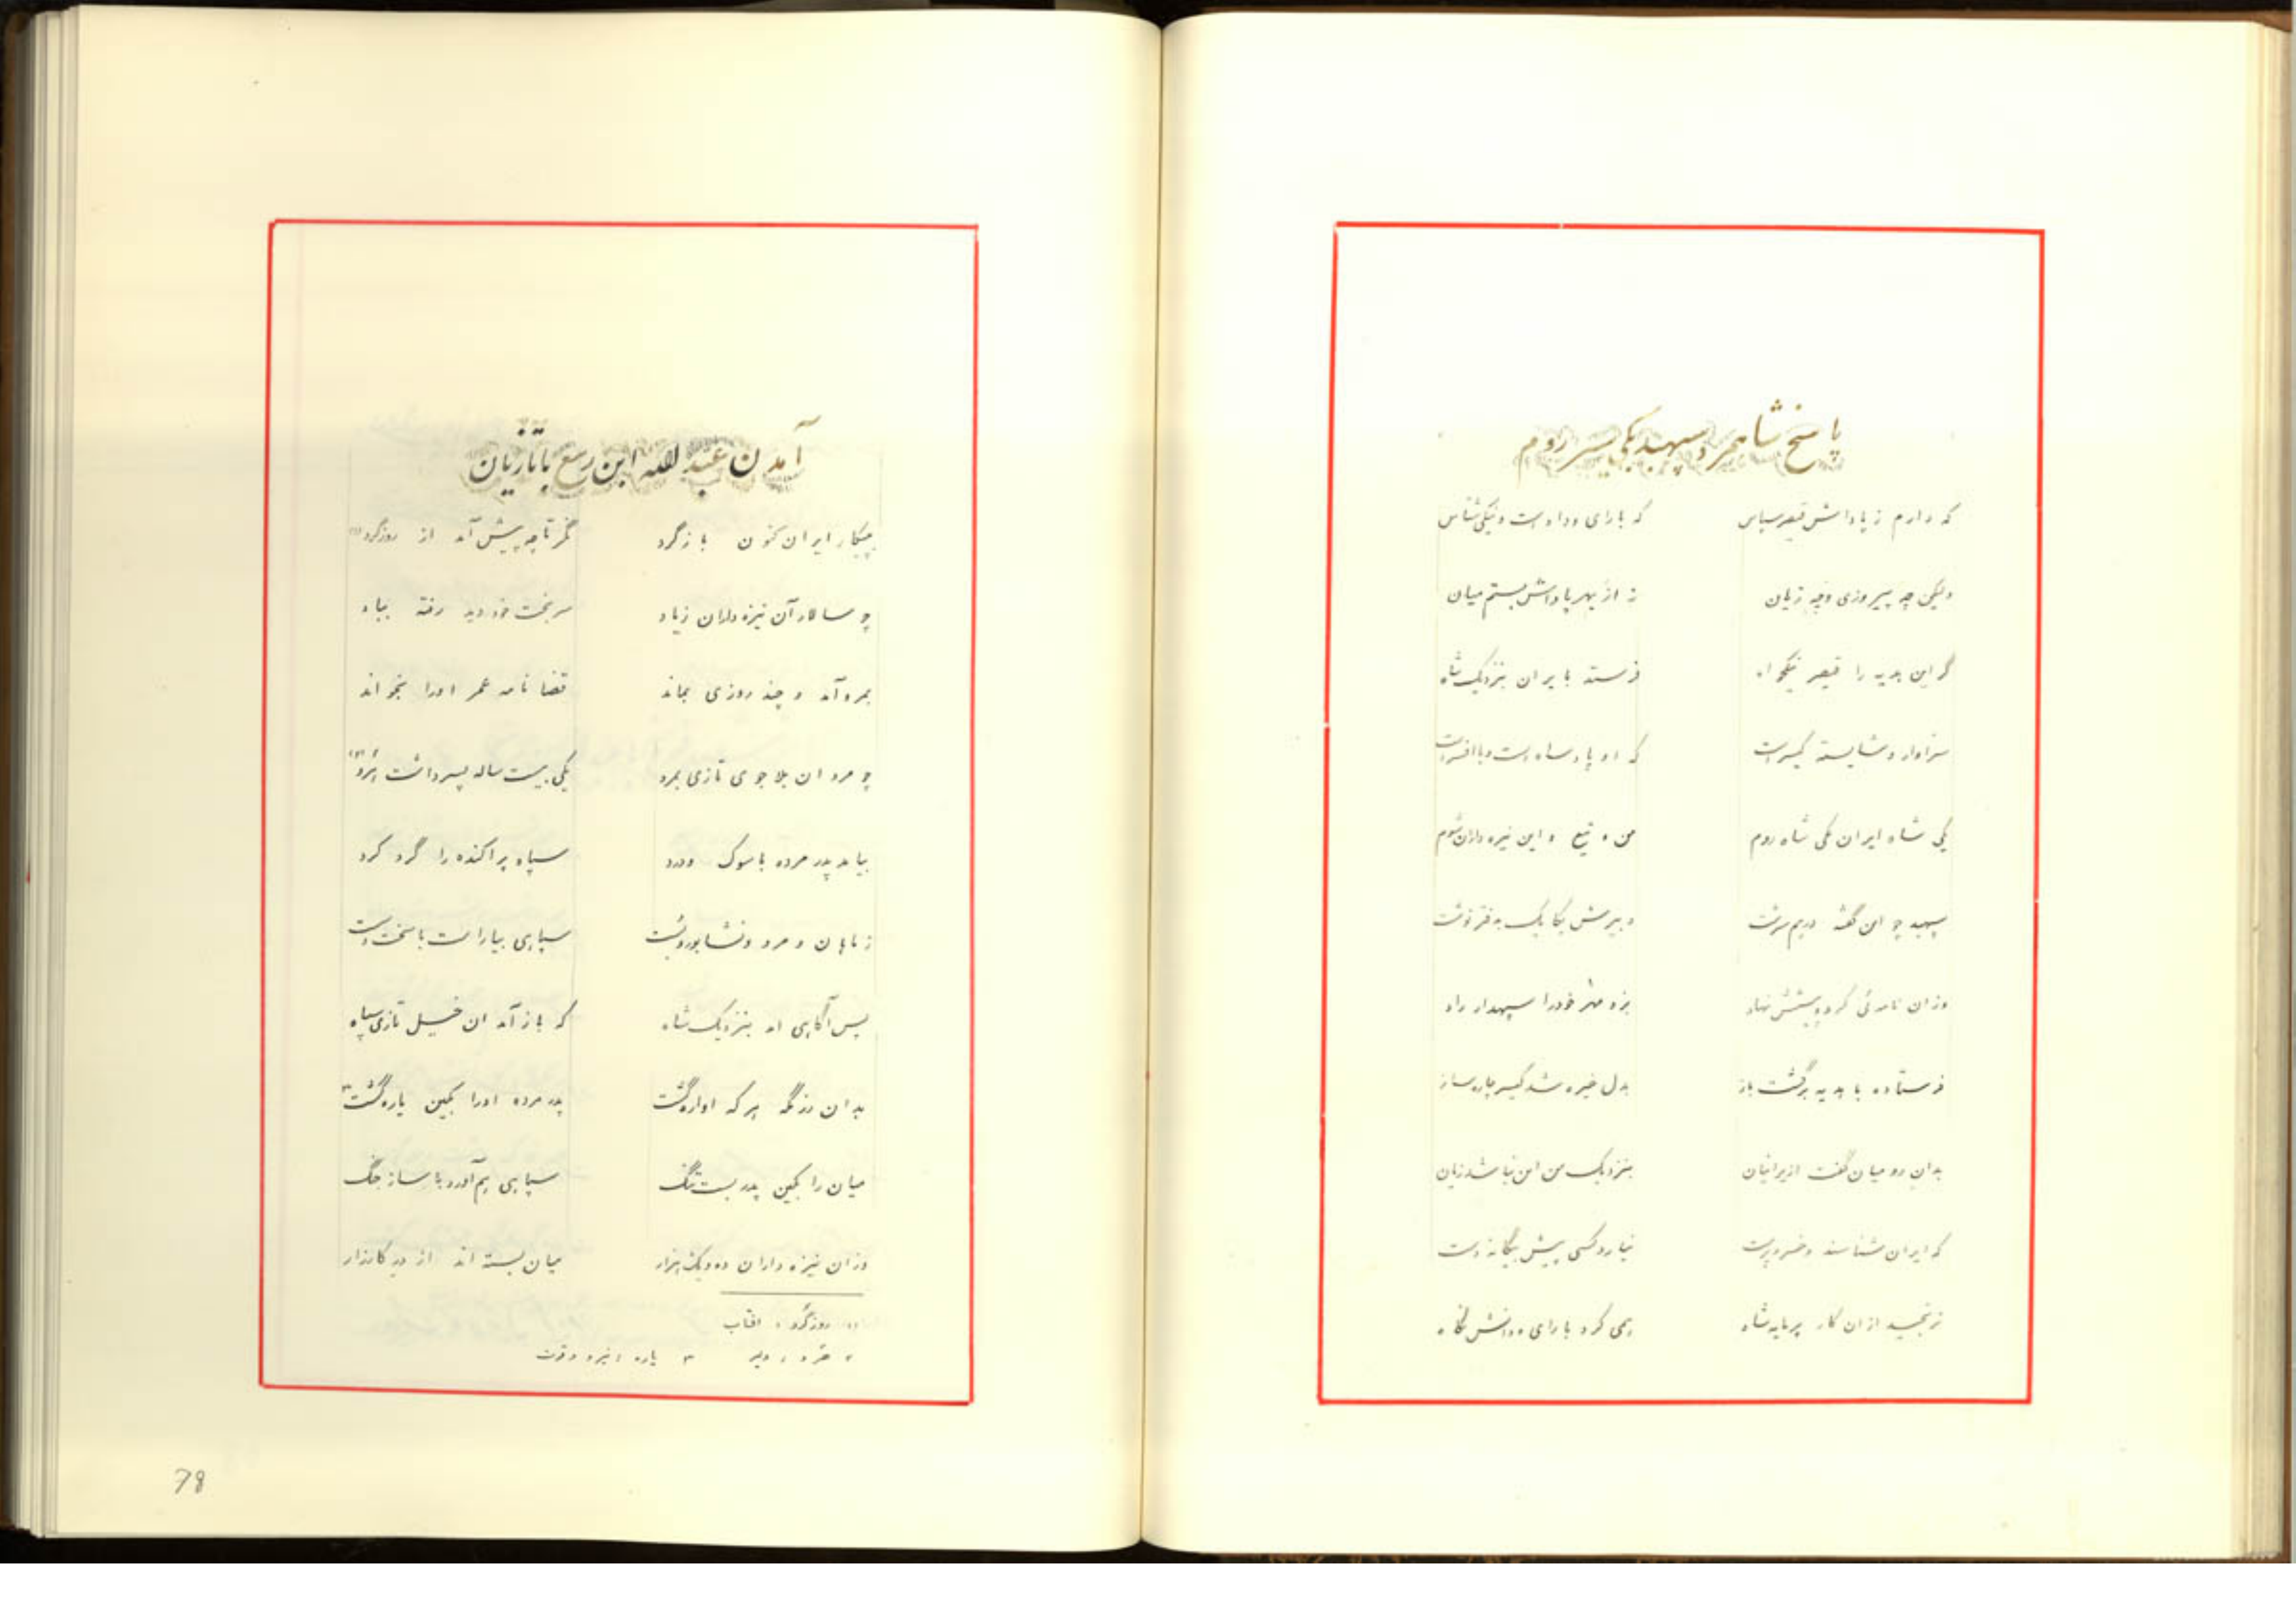 پاسخ شاهمرد سپهبد بکی‌سر روم
که دارم ز پاداش قیصر سپاس که بارای و داد است و نیکی شناس
ولیکن چه پیروزی و چه زیان نه از بهر پاداش بستم میان
گر این هدیه را قیصر نیکخواه فرستد بایران بنزدیک شاه
سزاوار و شایسته کیسر است که او پادشاه است و باافسر است
یکی شاه ایران یکی شاه روم من و تیغ و این نیزه داران شوم
سپهبد چو این گفته درهم سرشت دبیرش یکایک بدفتر نوشت
وزان نامه‌ئی کرد و پیشش نهاد بزد مهر خود را سپهدار راد
فرستاده با هدیه برگشت باز بدل خیره شد کیسر چاره‌ساز
بدان رومیان گفت از ایرانیان بنزدیک من این نباشد زیان
که ایران شناسند و خسروپرست نیارد کسی پیش بیگانه دست
نرنجید از آن کار پرمایه شاه همی کرد بارای و دانش نگاه
آمدن عبدالله ابن ربیع با تازیان
به پیکار ایران کنون بازگرد نگر تا چه پیش آمد از روزگرد (۱)
چو سالار آن نیزه داران زیاد سر بخت خود دید رفته بباد
بمرو آمد و چند روزی بماند قضا نامه عمر او را بخواند
چو مرد آن بلاجوی تازی بمرد یکی بیست ساله پسر داشت
بیامد پدر مرده با سوک و درد سپاه پراکنده را گرد کرد
ز ماهان و مرو و نشابور و بست سپاهی بیاراست با سخت و سست
پس آگاهی آمد بنزدیک شاه که باز آمد آن خیل تازی سپاه
بدان رزمگه هر که آواره گشت پدر مرده او را بکین یاره گشت ۳
میان را بکین پدر بست تنگ سپاهی بهم آورد با ساز جنگ
وزان نیزه داران ده و یک هزار میان بسته‌اند از در کارزار
(۱) روزگرد : آفتاب
۲ : دلیر ۳ یاره : نیرو و قوت
78